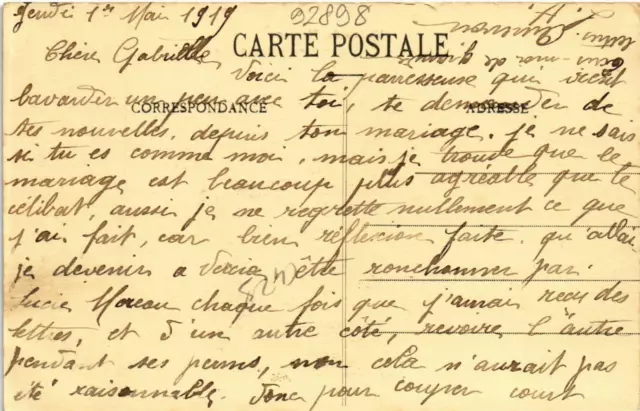 Jeudi 1er Mai 1919
92898
Chère Gabrielle,
CARTE POSTALE
Voici la parresseuse qui vient
bavarder un peu avec toi, te demander de
CORRESPONDANCE
ADRESSE
tes nouvelles, depuis ton mariage. je ne sais
si tu es comme moi, mais je trouve que le
mariage est beaucoup plus agréable que le
célibat, aussi je ne regrette nullement ce que
j'ai fait, car bien réflexion faite, qu'allai
je devenir a être ronchonner par
Lucie Moreau chaque fois que j'aurai reçu des
lettres, et d'un autre côté, revoire l'autre
pendant ses perms, non cela n'aurait pas
été raisonnable. Donc pour couper court